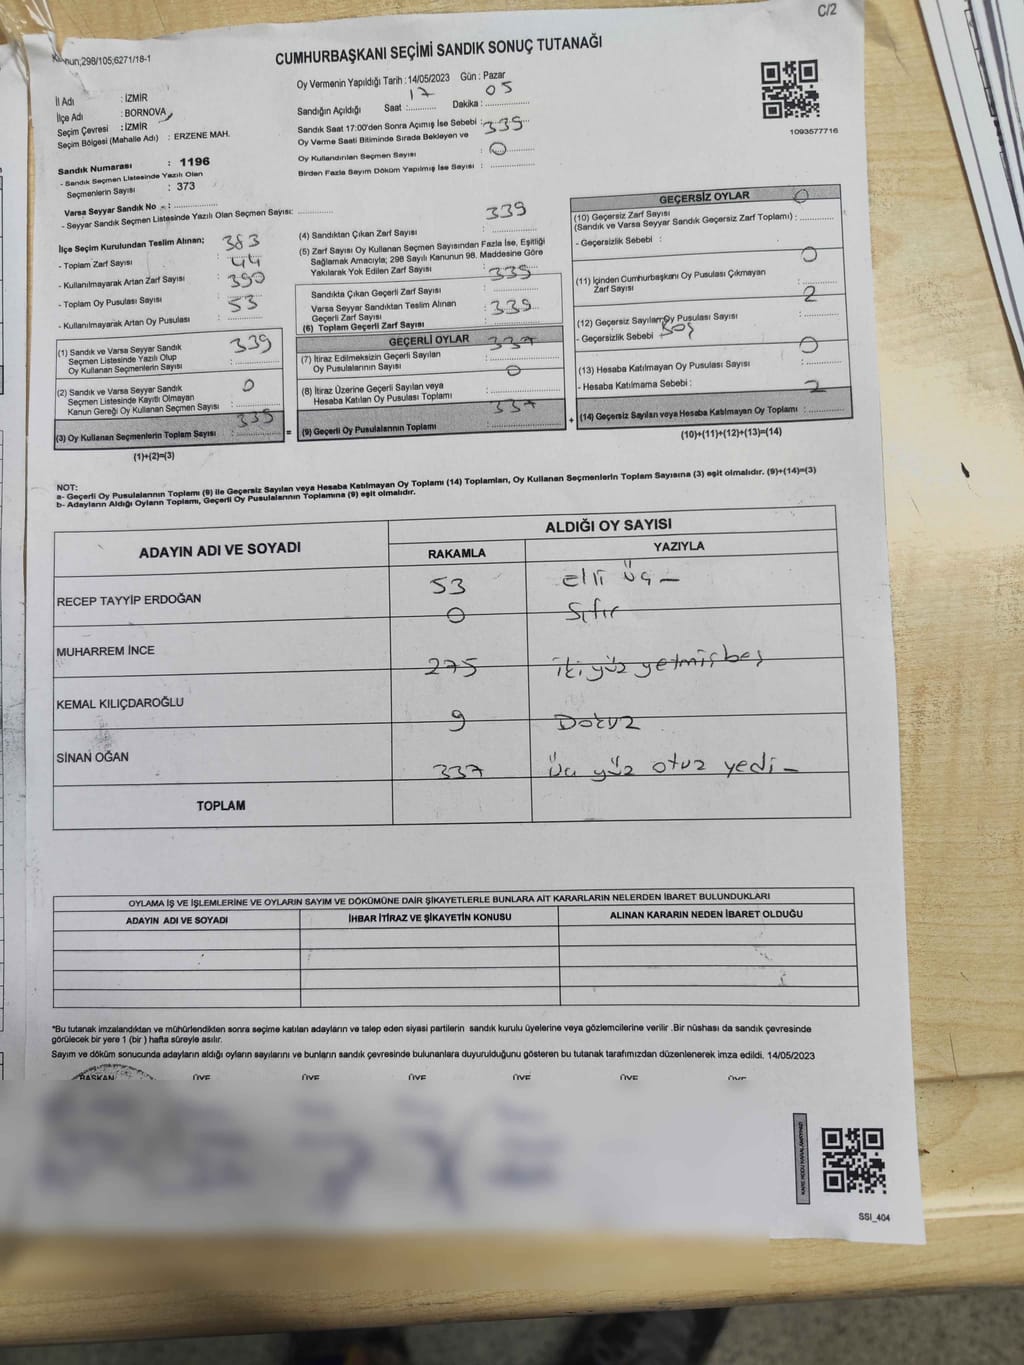 C/2
298/105;6271/18-1
CUMHURBAŞKANI SEÇİMİ SANDIK SONUÇ TUTANAĞI
İl Adı : İZMİR
İlçe Adı : BORNOVA
Seçim Çevresi : İZMİR
Seçim Bölgesi (Mahalle Adı) : ERZENE MAH.
Sandık Numarası : 1196
- Sandık Seçmen Listesinde Yazılı Olan
Seçmenlerin Sayısı : 373
Varsa Seyyar Sandık No - : ..............
- Seyyar Sandık Seçmen Listesinde Yazılı Olan Seçmen Sayısı: ..............
Oy Vermenin Yapıldığı Tarih : 14/05/2023 Gün : Pazar
Sandığın Açıldığı Saat : 17 Dakika : 05
Sandık Saat 17:00'den Sonra Açımış İse Sebebi : 339
Oy Verme Saati Bitiminde Sırada Bekleyen ve
Oy Kullandırılan Seçmen Sayısı : 0
Birden Fazla Sayım Döküm Yapılmış İse Sayısı : ..............
1093577716
İlçe Seçim Kurulundan Teslim Alınan;
- Toplam Zarf Sayısı : 383
- Kullanılmayarak Artan Zarf Sayısı : 44
- Toplam Oy Pusulası Sayısı : 390
- Kullanılmayarak Artan Oy Pusulası : 53
(1) Sandık ve Varsa Seyyar Sandık
Seçmen Listesinde Yazılı Olup
Oy Kullanan Seçmenlerin Sayısı : 339
(2) Sandık ve Varsa Seyyar Sandık
Seçmen Listesinde Kayıtlı Olmayan
Kanun Gereği Oy Kullanan Seçmen Sayısı : 0
(3) Oy Kullanan Seçmenlerin Toplam Sayısı : 339
(1)+(2)=(3)
(4) Sandıktan Çıkan Zarf Sayısı : 339
(5) Zarf Sayısı Oy Kullanan Seçmen Sayısından Fazla İse, Eşitliği
Sağlamak Amacıyla; 298 Sayılı Kanunun 98. Maddesine Göre
Yakılarak Yok Edilen Zarf Sayısı :
Sandıkta Çıkan Geçerli Zarf Sayısı : 339
Varsa Seyyar Sandıktan Teslim Alınan
Geçerli Zarf Sayısı :
(6) Toplam Geçerli Zarf Sayısı : 339
GEÇERLİ OYLAR
(7) İtiraz Edilmeksizin Geçerli Sayılan
Oy Pusulalarının Sayısı : 337
(8) İtiraz Üzerine Geçerli Sayılan veya
Hesaba Katılan Oy Pusulası Toplamı : 0
= (9) Geçerli Oy Pusulalarının Toplamı : 337
GEÇERSİZ OYLAR
(10) Geçersiz Zarf Sayısı
(Sandık ve Varsa Seyyar Sandık Geçersiz Zarf Toplamı) : 0
- Geçersizlik Sebebi :
(11) İçinden Cumhurbaşkanı Oy Pusulası Çıkmayan
Zarf Sayısı : 0
(12) Geçersiz Sayılan Oy Pusulası Sayısı : 2
- Geçersizlik Sebebi : Boş
(13) Hesaba Katılmayan Oy Pusulası Sayısı : 0
- Hesaba Katılmama Sebebi :
+ (14) Geçersiz Sayılan veya Hesaba Katılmayan Oy Toplamı : 2
(10)+(11)+(12)+(13)=(14)
NOT:
a- Geçerli Oy Pusulalarının Toplamı (9) ile Geçersiz Sayılan veya Hesaba Katılmayan Oy Toplamı (14) Toplamları, Oy Kullanan Seçmenlerin Toplam Sayısına (3) eşit olmalıdır. (9)+(14)=(3)
b- Adayların Aldığı Oyların Toplamı, Geçerli Oy Pusulalarının Toplamına (9) eşit olmalıdır.
ADAYIN ADI VE SOYADI
ALDIĞI OY SAYISI
RAKAMLA YAZIYLA
RECEP TAYYİP ERDOĞAN 53 elli üç
MUHARREM İNCE 0 Sıfır
KEMAL KILIÇDAROĞLU 275 iki yüz yetmiş beş
SİNAN OĞAN 9 Dokuz
TOPLAM 337 üç yüz otuz yedi
OYLAMA İŞ VE İŞLEMLERİNE VE OYLARIN SAYIM VE DÖKÜMÜNE DAİR ŞİKAYETLERLE BUNLARA AİT KARARLARIN NELERDEN İBARET BULUNDUKLARI
ADAYIN ADI VE SOYADI İHBAR İTİRAZ VE ŞİKAYETİN KONUSU ALINAN KARARIN NEDEN İBARET OLDUĞU
*Bu tutanak imzalandıktan ve mühürlendikten sonra seçime katılan adayların ve talep eden siyasi partilerin sandık kurulu üyelerine veya gözlemcilerine verilir .Bir nüshası da sandık çevresinde
görülecek bir yere 1 (bir ) hafta süreyle asılır.
Sayım ve döküm sonucunda adayların aldığı oyların sayılarını ve bunların sandık çevresinde bulunanlara duyurulduğunu gösteren bu tutanak tarafımızdan düzenlenerek imza edildi. 14/05/2023
BAŞKAN ÜYE ÜYE ÜYE ÜYE ÜYE ÜYE
SSI_404